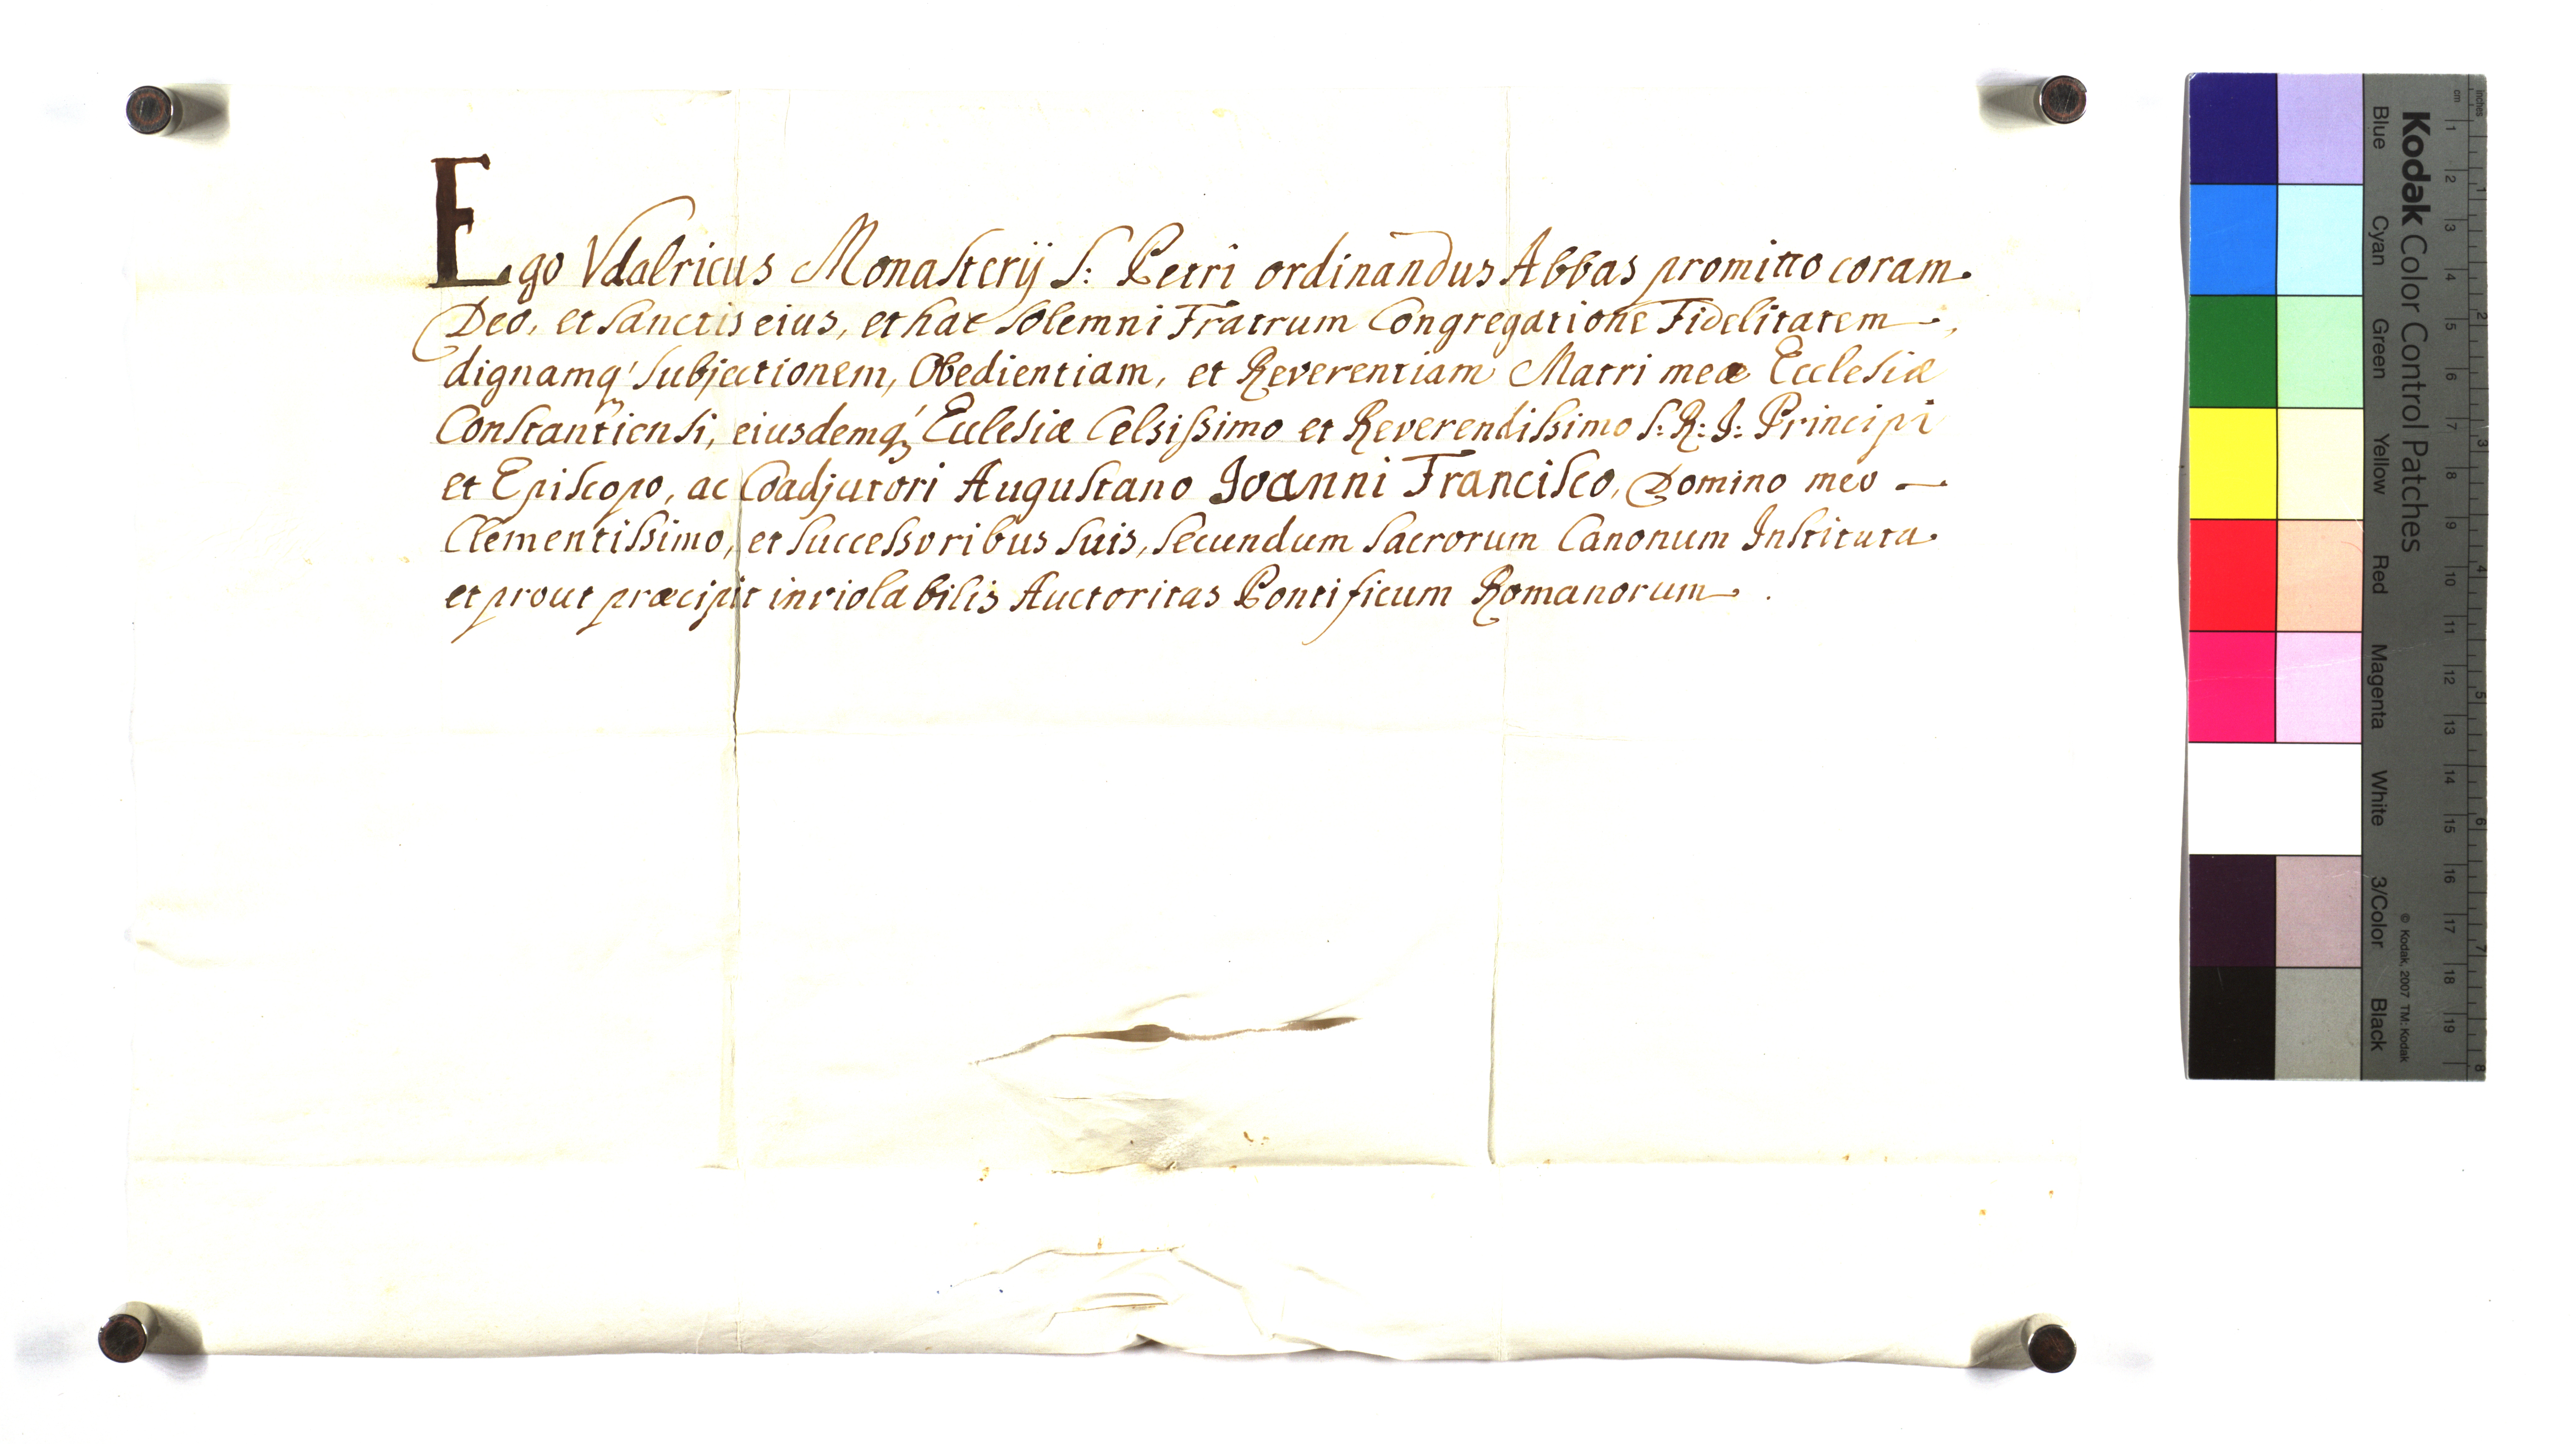 Ego Vdalricus Monasterij S: Petri ordinandus Abbas promitto coram
Deo, et Sanctis eius, et hac Solemni Fratrum Congregatione Fidelitatem,
dignamq' Subjectionem, Obedientiam, et Reverentiam Matri meæ Ecclesiæ
Constantiensi, eiusdemq' Ecclesiæ Celsissimo et Reverendissimo S: R: I: Principi
et Episcopo, ac Coadjutori Augustano Joanni Francisco, Domino meo —
Clementissimo, et Successoribus Suis, Secundum Sacrorum Canonum Instituta
et prout præcipit inviolabilis Auctoritas Pontificum Romanorum .
Kodak Color Control Patches
Blue Cyan Green Yellow Red Magenta White 3/Color Black
© Kodak, 2007 TM: Kodak
inches 1 2 3 4 5 6 7 8
cm 1 2 3 4 5 6 7 8 9 10 11 12 13 14 15 16 17 18 19